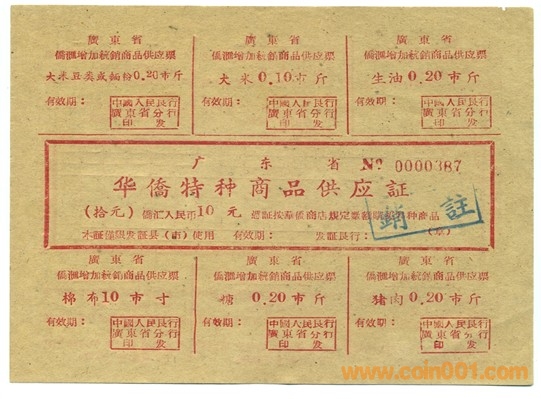 廣東省
僑匯增加統銷商品供应票
大米豆类或麵粉0.20市斤
有效期：
中國人民艮行
廣東省分行
印发
廣東省
僑匯增加統銷商品供应票
大米0.10市斤
有效期：
中國人民艮行
廣東省分行
印发
廣東省
僑匯增加統銷商品供应票
生油0.20市斤
有效期：
中國人民艮行
廣東省分行
印发
广东省 № 0000387
华僑特种商品供应証
(拾元) 僑汇人民币10元 憑証按华僑商店規定票額購買各种產品
本証僅限发証县(市)使用 有效期： 发証艮行： (章)
註銷
廣東省
僑匯增加統銷商品供应票
棉布10市寸
有效期：
中國人民艮行
廣東省分行
印发
廣東省
僑匯增加統銷商品供应票
糖0.20市斤
有效期：
中國人民艮行
廣東省分行
印发
廣東省
僑匯增加統銷商品供应票
猪肉0.20市斤
有效期：
中國人民艮行
廣東省分行
印发
www.coin001.com